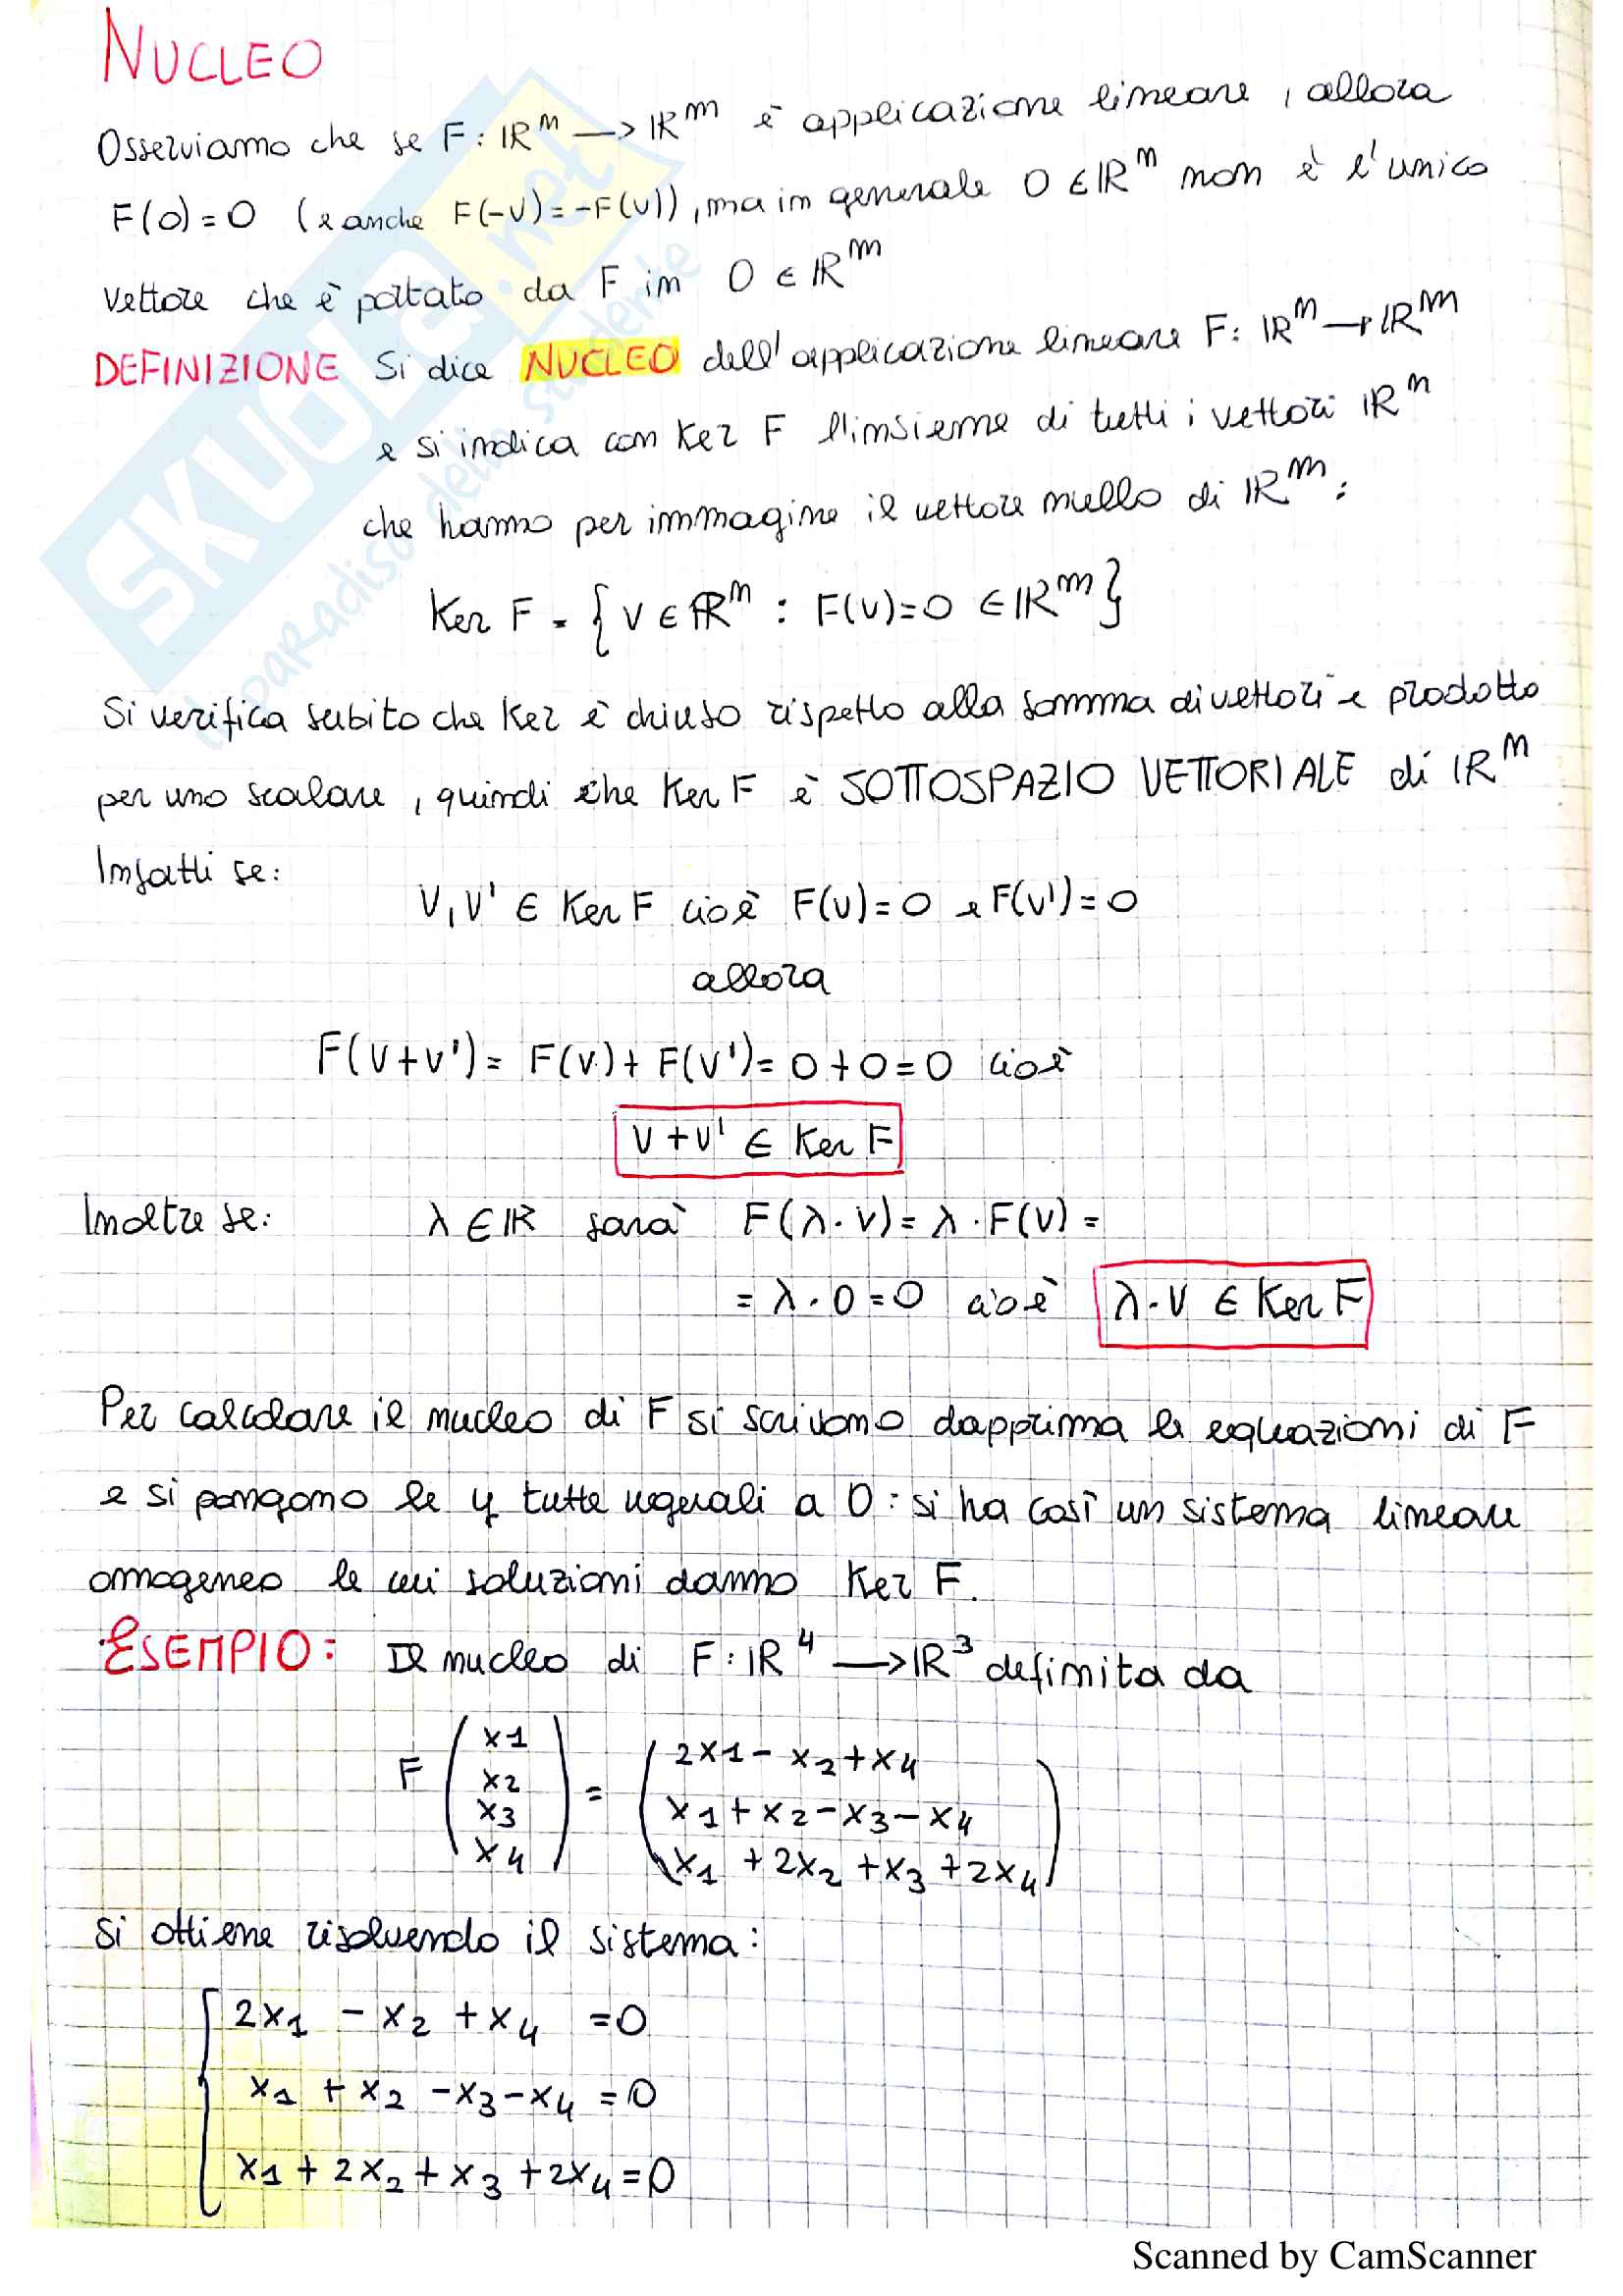 NUCLEO
Osserviamo che se F : ℝⁿ → ℝᵐ è applicazione lineare, allora
F(0) = 0 (e anche F(-v) = -F(v)), ma in generale 0 ∈ ℝⁿ non è l'unico
vettore che è portato da F in 0 ∈ ℝᵐ
DEFINIZIONE Si dice NUCLEO dell'applicazione lineare F: ℝⁿ → ℝᵐ
e si indica con Ker F l'insieme di tutti i vettori ℝⁿ
che hanno per immagine il vettore nullo di ℝᵐ:
Ker F = { v ∈ ℝⁿ : F(v)=0 ∈ ℝᵐ }
Si verifica subito che Ker è chiuso rispetto alla somma di vettori e prodotto
per uno scalare, quindi che Ker F è SOTTOSPAZIO VETTORIALE di ℝⁿ
Infatti se:
v, v' ∈ Ker F cioè F(v) = 0 e F(v') = 0
allora
F(v+v') = F(v) + F(v') = 0+0=0 cioè
v+v' ∈ Ker F
Inoltre se: λ ∈ ℝ sarà F(λ·v) = λ·F(v) =
= λ·0 = 0 cioè λ·v ∈ Ker F
Per calcolare il nucleo di F si scrivono dapprima le equazioni di F
e si pongono le y tutte uguali a 0: si ha così un sistema lineare
omogeneo le cui soluzioni danno Ker F.
ESEMPIO: Il nucleo di F : ℝ⁴ → ℝ³ definita da
F (x1 x2 x3 x4) = (2x1 - x2 + x4
x1 + x2 - x3 - x4
x1 + 2x2 + x3 + 2x4)
si ottiene risolvendo il sistema:
2x1 - x2 + x4 = 0
x1 + x2 - x3 - x4 = 0
x1 + 2x2 + x3 + 2x4 = 0
SKUOLA.net
il paradiso dello studente
Scanned by CamScanner